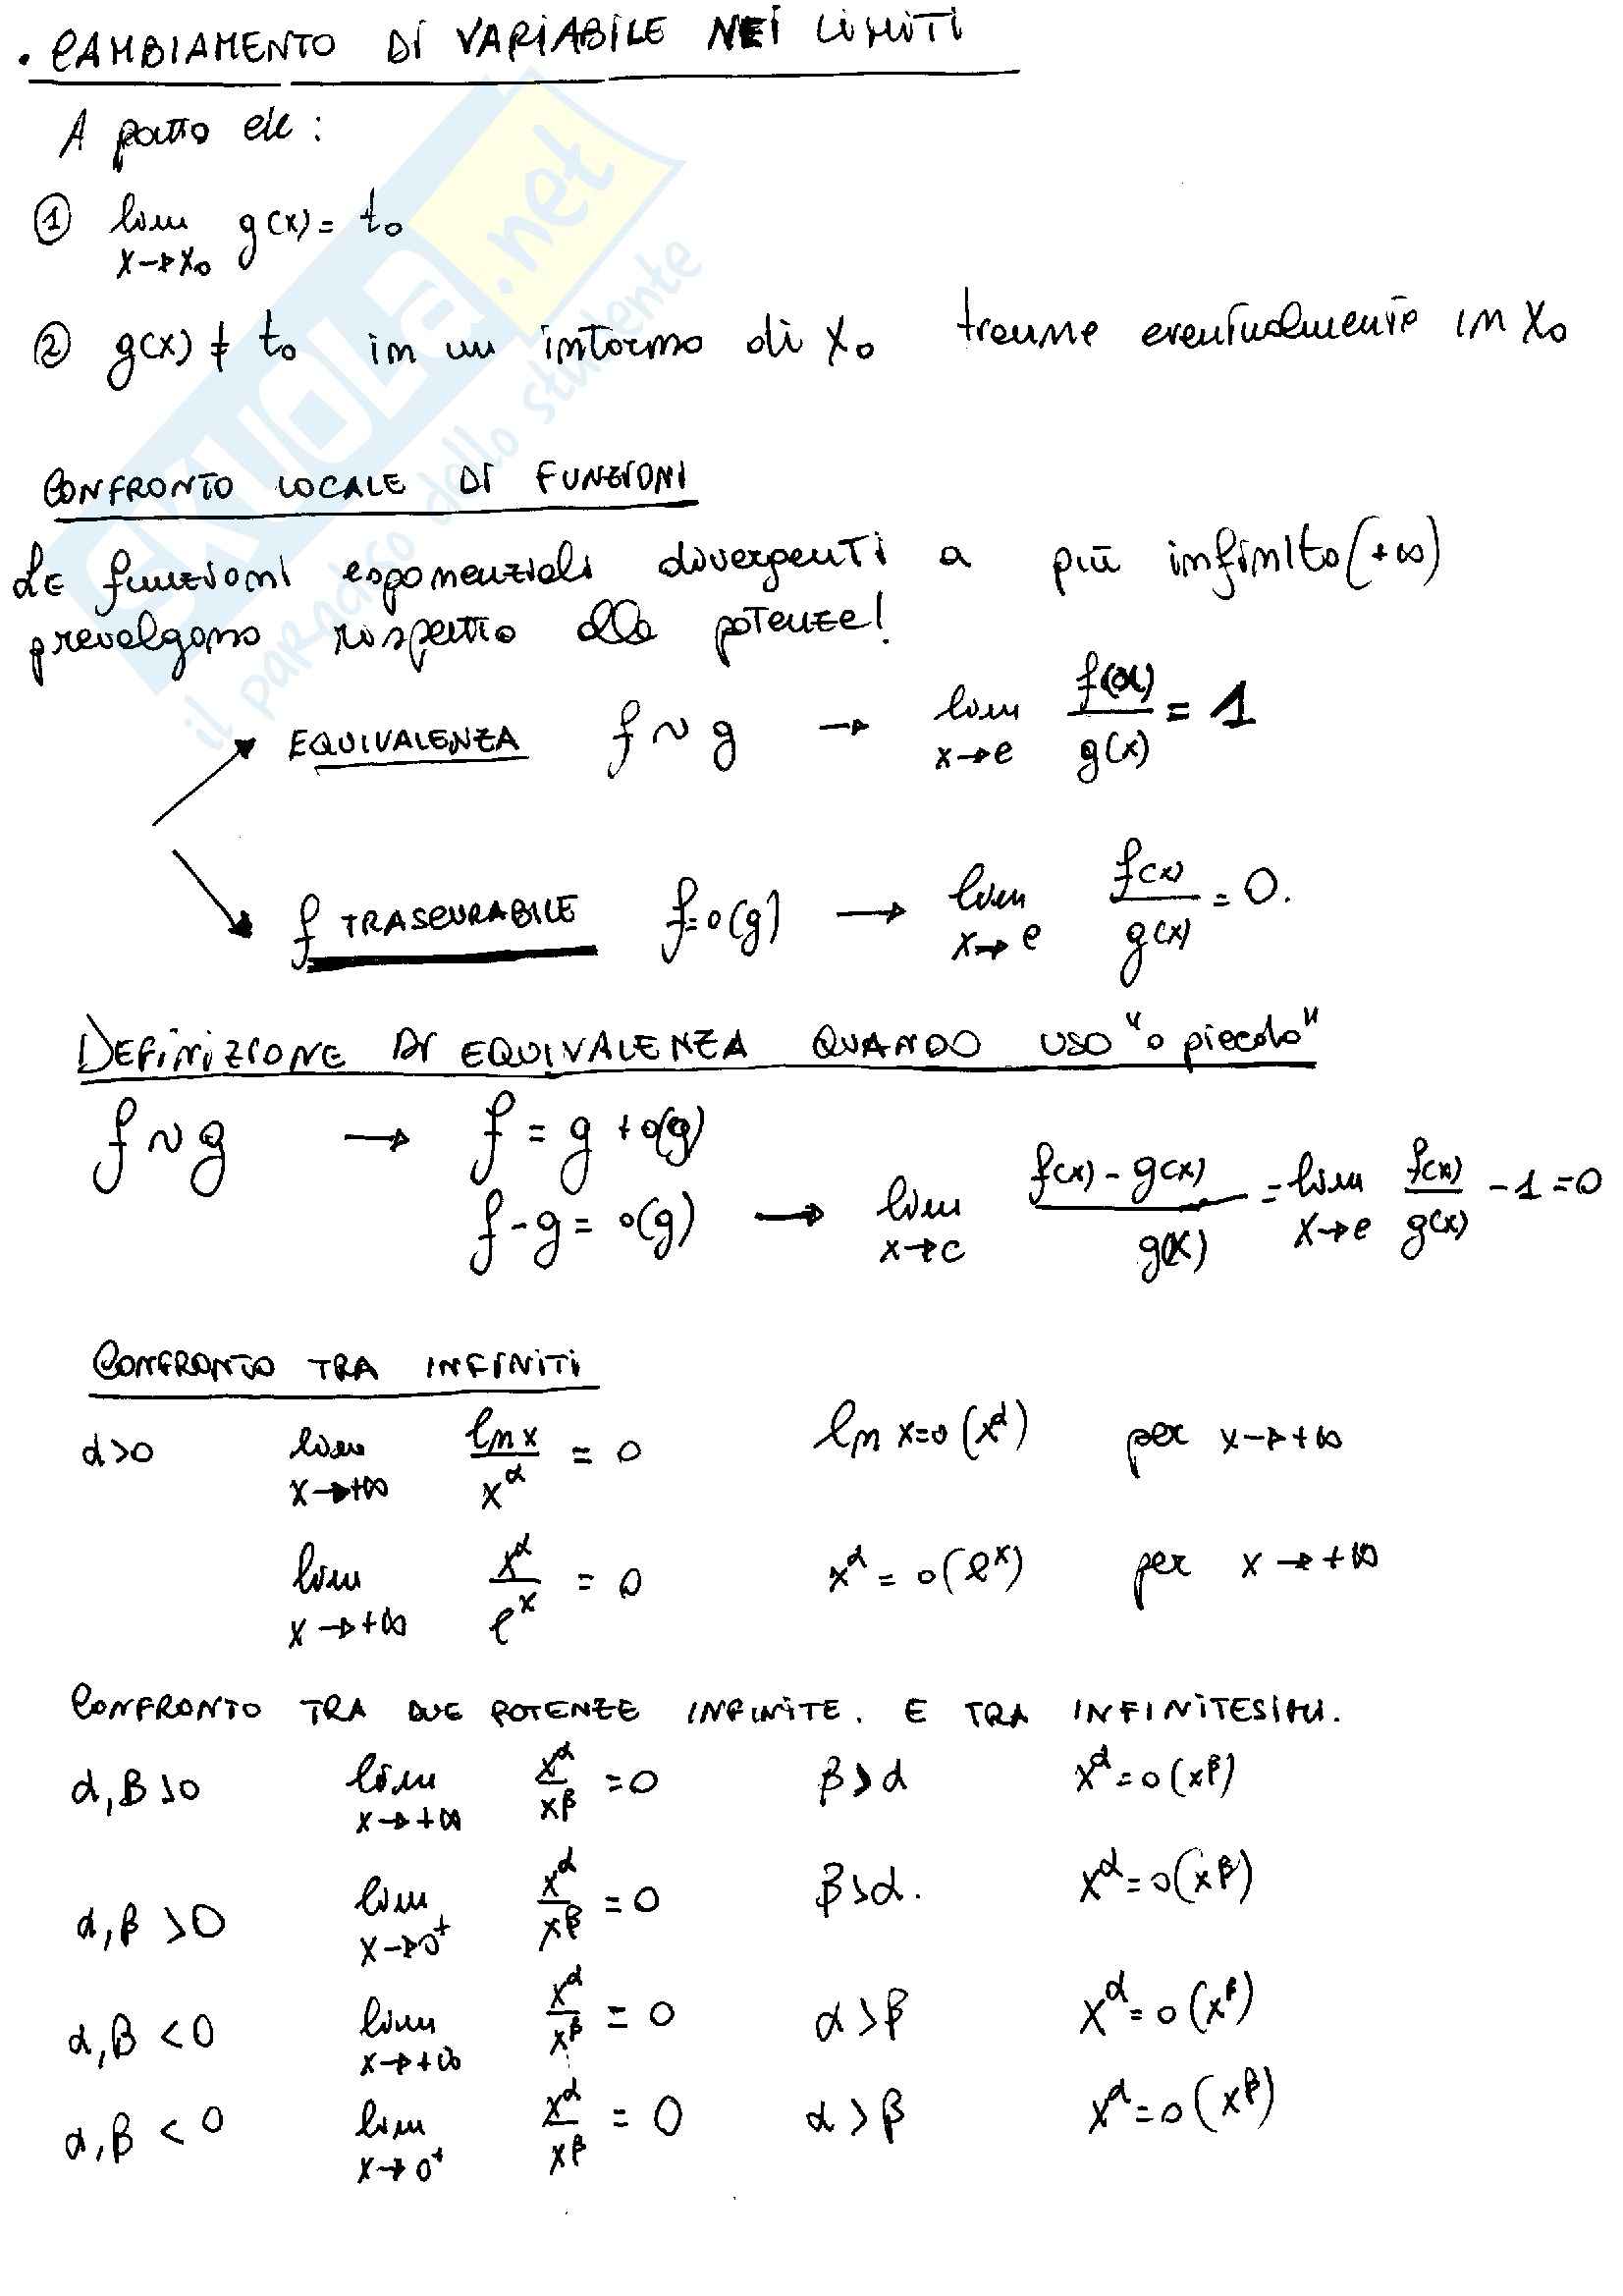 • CAMBIAMENTO DI VARIABILE NEI LIMITI
A patto che:
① lim x→x₀ g(x) = t₀
② g(x) ≠ t₀ in un intorno di x₀ tranne eventualmente in x₀
CONFRONTO LOCALE DI FUNZIONI
LE funzioni esponenziali divergenti a più infinito (+∞)
prevalgono rispetto alle potenze!
EQUIVALENZA f ~ g → lim x→c f(x)/g(x) = 1
f TRASCURABILE f=o(g) → lim x→c f(x)/g(x) = 0.
DEFINIZIONE DI EQUIVALENZA QUANDO USO "o piccolo"
f ~ g → f = g + o(g)
f - g = o(g) → lim x→c f(x) - g(x)/g(x) = lim x→c f(x)/g(x) - 1 = 0
CONFRONTO TRA INFINITI
α>0 lim x→+∞ ln x/x^α = 0 ln x = o(x^α) per x→+∞
lim x→+∞ x^α/e^x = 0 x^α = o(e^x) per x→+∞
CONFRONTO TRA DUE POTENZE INFINITE. E TRA INFINITESIMI.
α,β>0 lim x→+∞ x^α/x^β = 0 β>α x^α = o(x^β)
α,β>0 lim x→0⁺ x^α/x^β = 0 β>α. x^α = o(x^β)
α,β<0 lim x→+∞ x^α/x^β = 0 α>β x^α = o(x^β)
α,β<0 lim x→0⁺ x^α/x^β = 0 α>β x^α = o(x^β)
SKUOLa.net
il paradiso dello studente